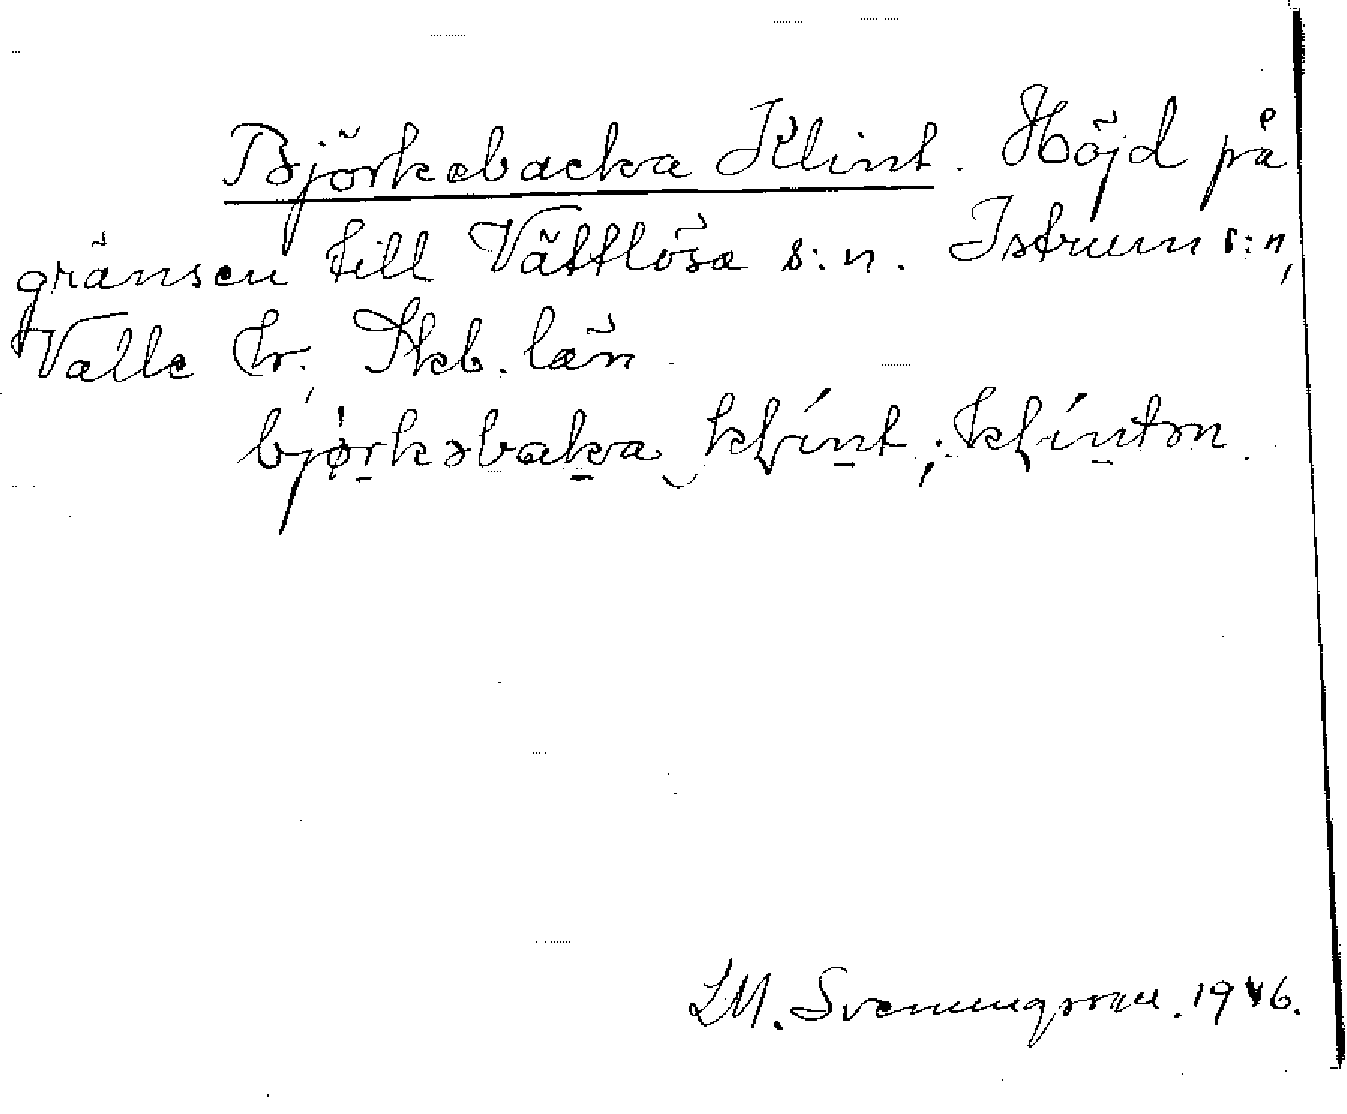 Björkebacka Klint. Höjd på
gränsen till Vättlösa s:n. Istrum s:n,
Valle hr, Skb. län
bjørkəbaka kl̥ínt; kl̥íntən.
LM. Svenungsson. 1946.